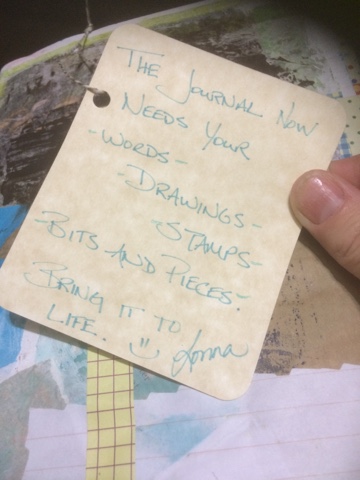 The Journal Now
Needs Your
-Words-
-Drawings-
-Stamps-
Bits and Pieces-
Bring it to
Life. Lonna